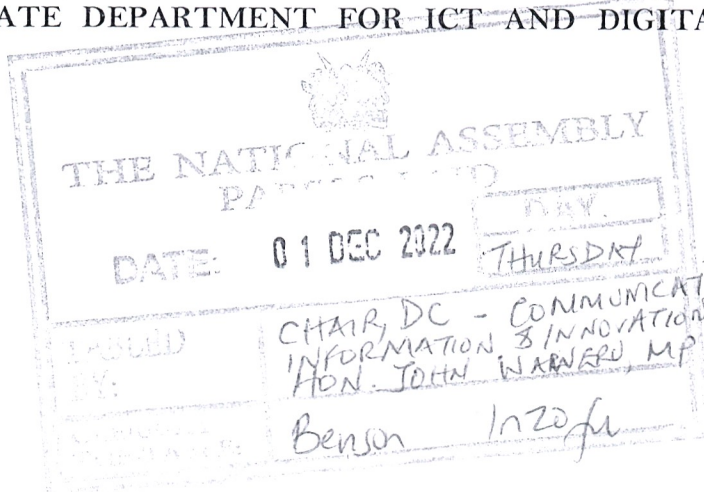 ATE DEPARTMENT FOR ICT AND DIGITA
THE NATIONAL ASSEMBLY
PAPERS LAID
DATE: 01 DEC 2022
DAY.
THURSDAY
CHAIR, DC - COMMUNICAT
INFORMATION & INNOVATION
HON. JOHN WARNERU, MP
BY:
Benson Inzofu